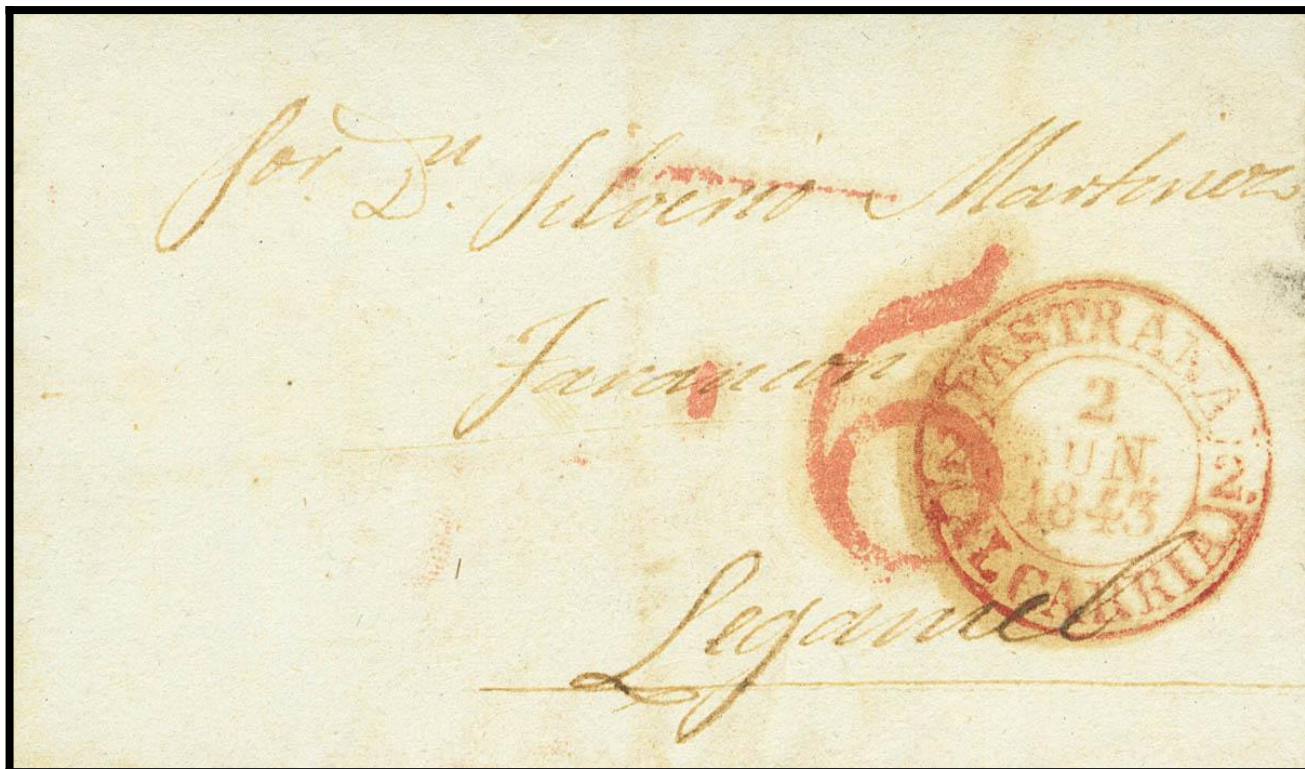 Sor. Dn. Silverio Martinez
Tarancon
6
PASTRANA. 2.
2
JUN.
1843
ALCARRIA. 2.
Leganiel